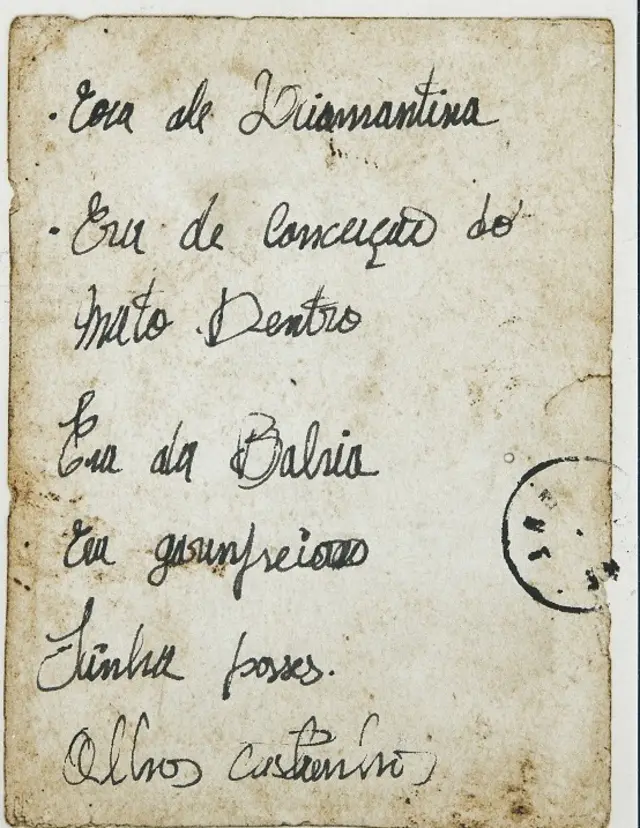 · Era de Diamantina
· Era de Conceição do
Mato Dentro
Era da Bahia
Era garimpeiro
Tinha posses.
Olhos castanhos